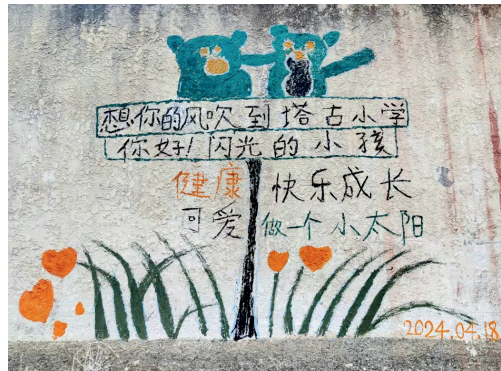 想你的风吹到塔古小学
你好！闪光的小孩
健康 快乐成长
可爱 做一个小太阳
2024.04.18